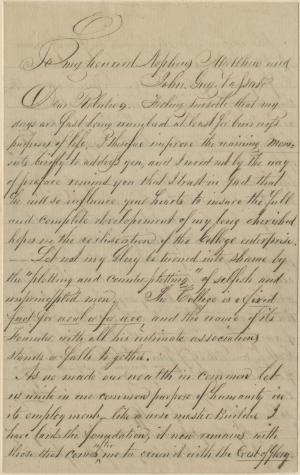 To my honored Nephews Matthew and
John, Guy,
Dear Relatives. Feeling sensible that my
days are fast being numbered at least for business
purposes of life, I therefore improve the waining Mom-
ents briefly to address you, and need not by the way
of preface remind you that I trust in God that
he will so influence your hearts to insure the full
and complete developement of my long cherished
hopes in the realisation of the College enterprise.
Let not my Glory be turned into shame by
the "plotting and counterplotting" of selfish and
unprincipled men. The College is a fixed
fact for weal or for woe, and the name of its
Founder, with all his intimate associations
stands or falls together.
As we made our wealth in common let
us unite in one common purpose of humanity in
its employment, like a wise master Builder I
have laid the foundation, it now remains with
those that come after me to crown it with the Crest of Glory.